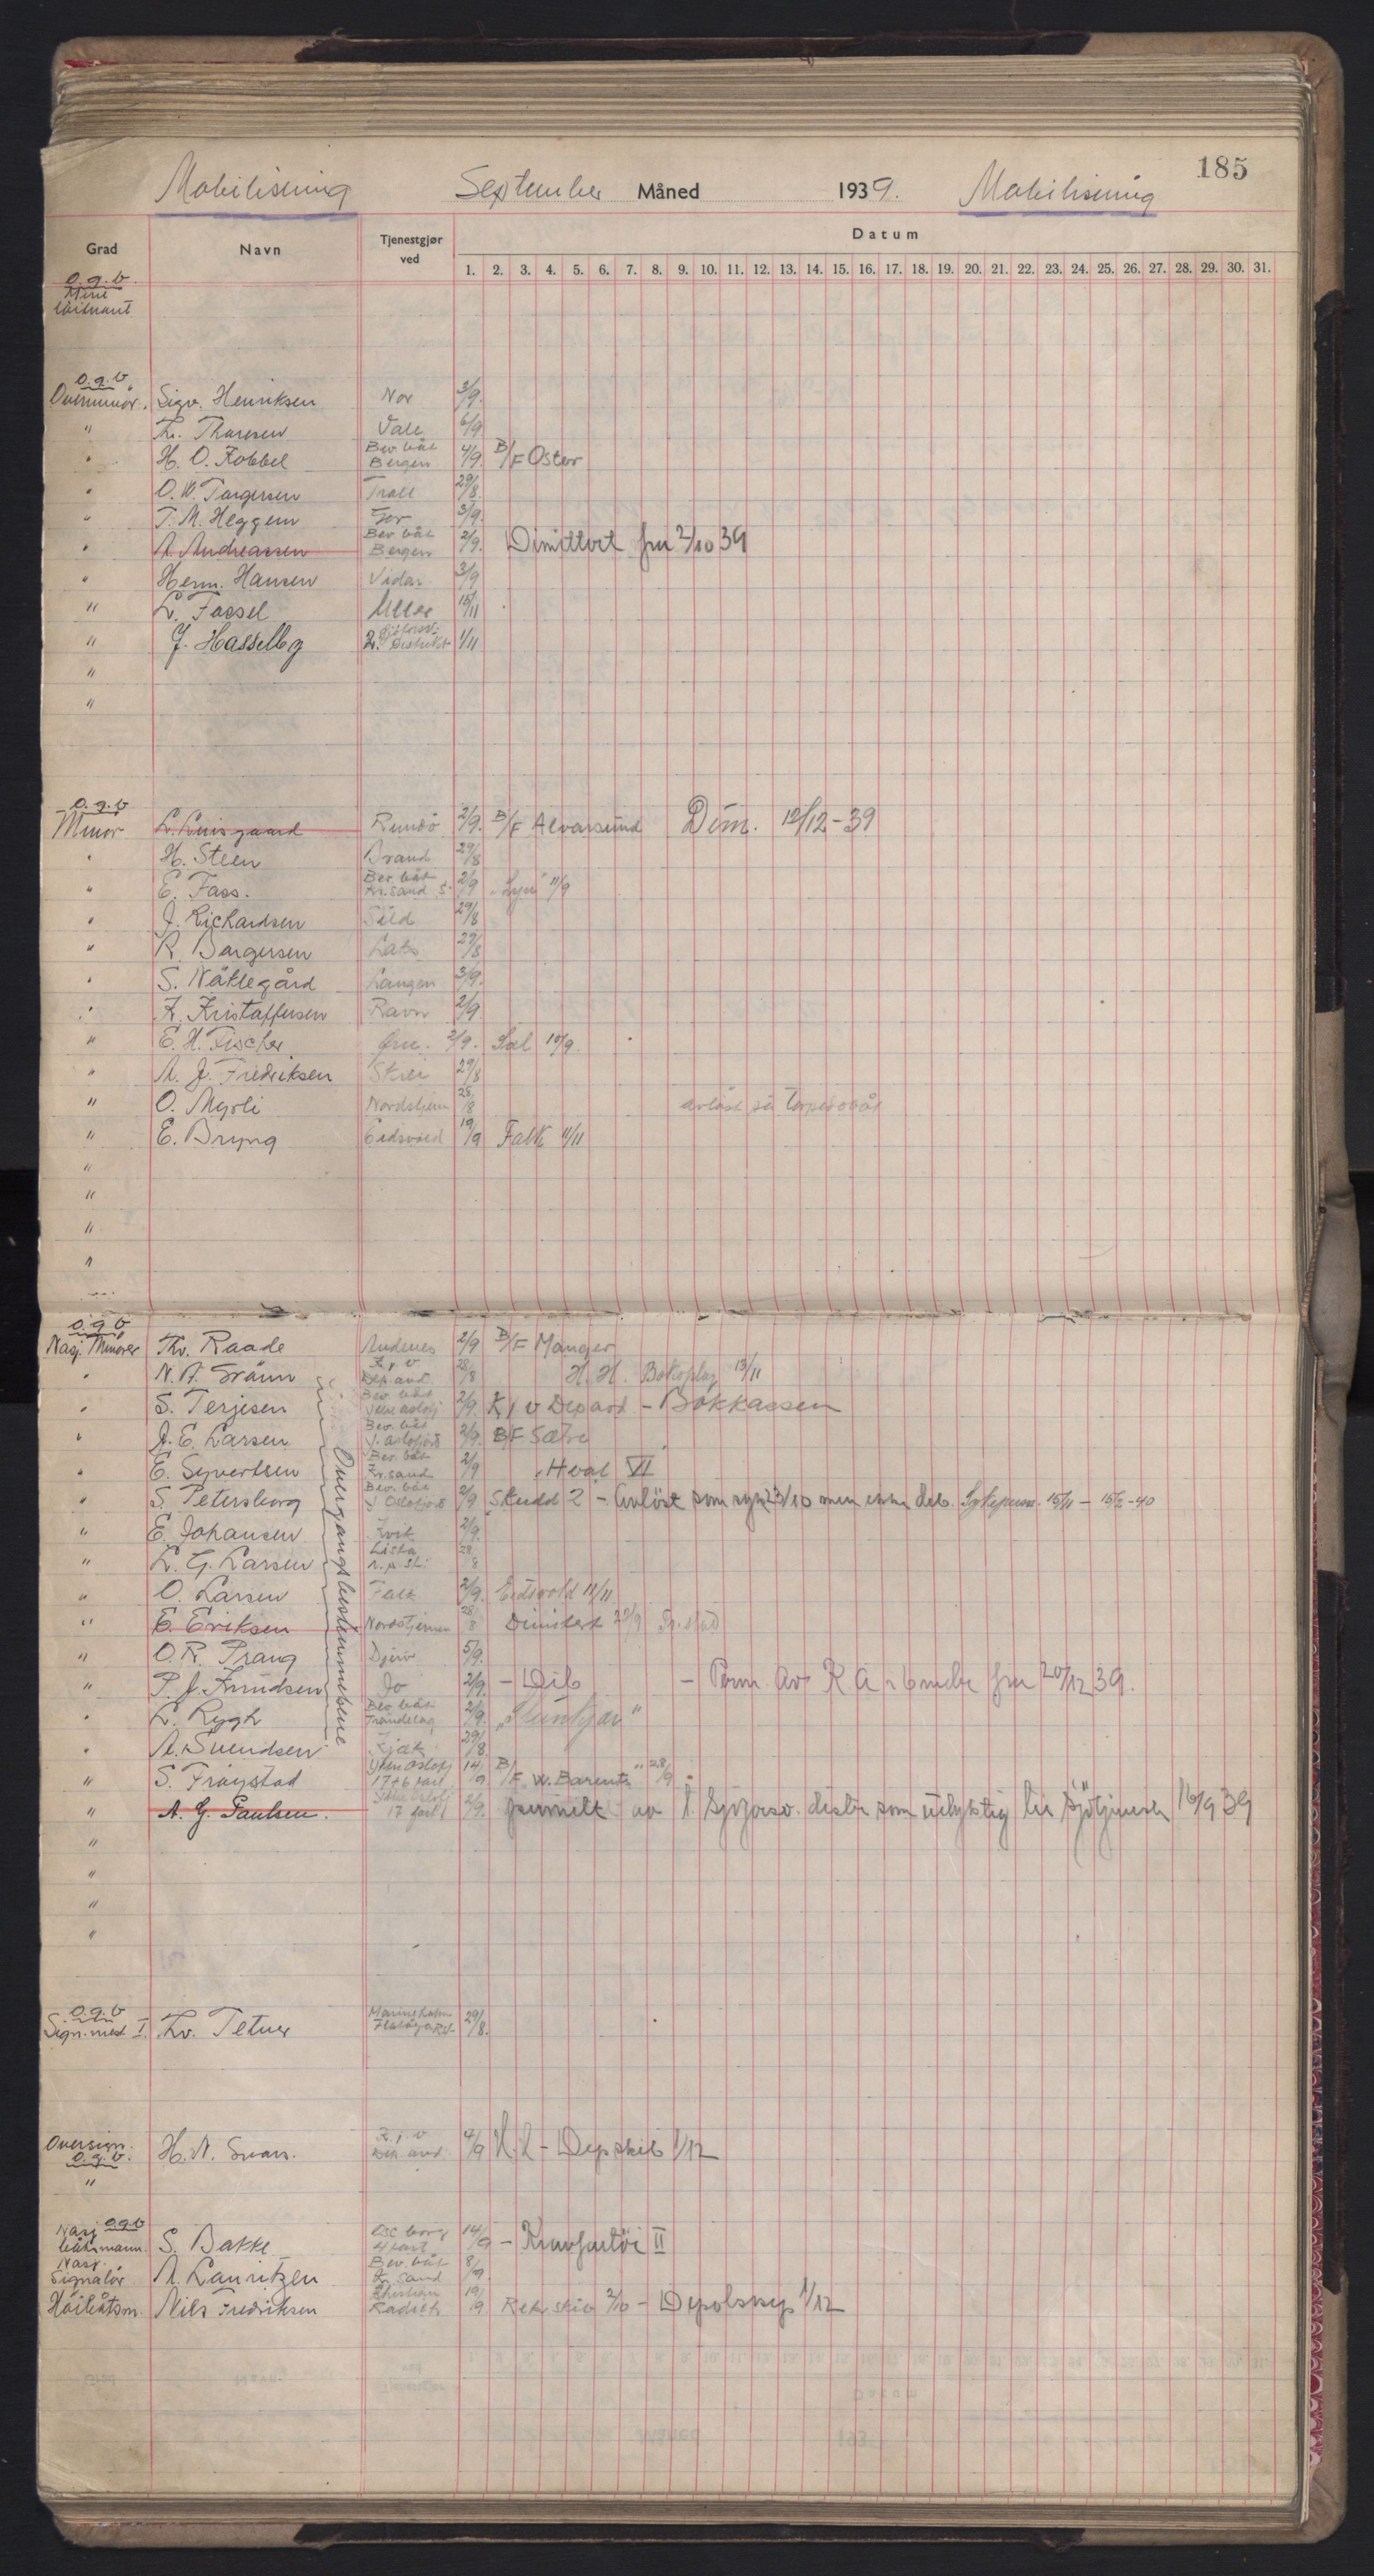 185
Mobilisering September Måned 1939. Mobilisering
Grad Navn Tjenestgjør ved Datum
1. 2. 3. 4. 5. 6. 7. 8. 9. 10. 11. 12. 13. 14. 15. 16. 17. 18. 19. 20. 21. 22. 23. 24. 25. 26. 27. 28. 29. 30. 31.
o.g.v.
Mine
løitnant
o.g.v.
Overminør. Sigv. Henriksen Nor 3/9.
" Th. Thoresen Vale 6/9
" H. O. Kobbel Bev. båt Bergen 4/9. B/F Oster
" O. W. Torgersen Troll 29/8.
" T. M. Heggem Tor 3/9.
" A. Andreassen Bev båt Bergen 2/9. Dimittert fra 2/10 39
" Herm. Hansen Vidar 3/9
" L. Fossel Uller 15/11
" J. Hasselbg 2. Distrikt 1/11
"
"
o.g.v
Minør L. Luisgaard Rundö 2/9. B/F Alversund Dim. 12/12-39
" H. Steen Brand 29/8
" E. Fass. Bev. båt Kr.sand S. 2/9 "Lyn" 11/9
" J. Rickardsen Sild 29/8
" R. Borgersen Laks 29/8
" S. Nåklegård Laugen 3/9.
" K. Kristoffersen Ravn 2/9.
" E. H. Fischer Ørn. 2/9. Sæl 10/9.
" A. J. Fredriksen Skrei 29/8
" O. Myrli Nordstjern 28/8 avløst på torpedobåt
" E. Bryng Eidsvold 19/9 Falk 11/11
"
"
"
"
o.g.v
Nasj. Minører Th. Raade Andenes 2/9 B/F Manger
" N. A. Svänn K.j.v Dep.avd. 28/8 H. H. 13/11
" S. Terjesen Bev. båt Ytre Oslofj 2/9. K j v Depavd - Bokkassen
" J. E. Larsen Bev. båt Y. Oslofjord 2/9. B/F Sætre
" E. Syvertsen Bev. båt Kr.sand 2/9 Hval VI
" S. Petersborg Bev. båt Y. Oslofjord 2/9 Skudd 2 - Avløst som syk 23/10 men ikke deb. Sykeperm. 15/11 - 15/2-40
" E. Johansen Kvik 2/9.
" L. G. Larsen Lista 28/8
" O. Larsen Falk 2/9. Eidsvold 11/11
" E. Eriksen Nordstjernen 28/8 Dimitert 27/9 Fr.stad
" O. R. Prang Djerv 5/9.
" P. J. Knudsen Do 2/9. - Dib - Perm. av K. A. i 6 mdr fra 20/12 39.
" L. Rygh Bev. båt Trøndelag 2/9.
" A. Svendsen Kjæk 29/8.
" S. Frøystad Ytre Oslofj 14/9 B/F "W. Barents" 28/9
" A. G. Paulsen. Ytre Oslofj 2/9. av 1. Sjøforsv. distr som udyktig til sjøtjeneste 16/9 39
Overgangsbestemmelsene
"
"
"
"
o.g.v
Sign.mest. I Kv. Tetner Marineholm 29/8.
Oversign.
o.g.v. H. N. Svan. K.j.v Dep. avd. 4/9 H. H - Depskib 1/12
"
Nasj o.g.v
båtsmann. S. Bakke Osc borg 14/9 - Kravfartöi II
Nasj.
Signalör A. Lauritzen Bev. båt Kr. sand 8/9.
Höibåtsm. Nils Fredriksen Christian Radich 19/9 Rekr.skib 2/10 - Depotskip 1/12